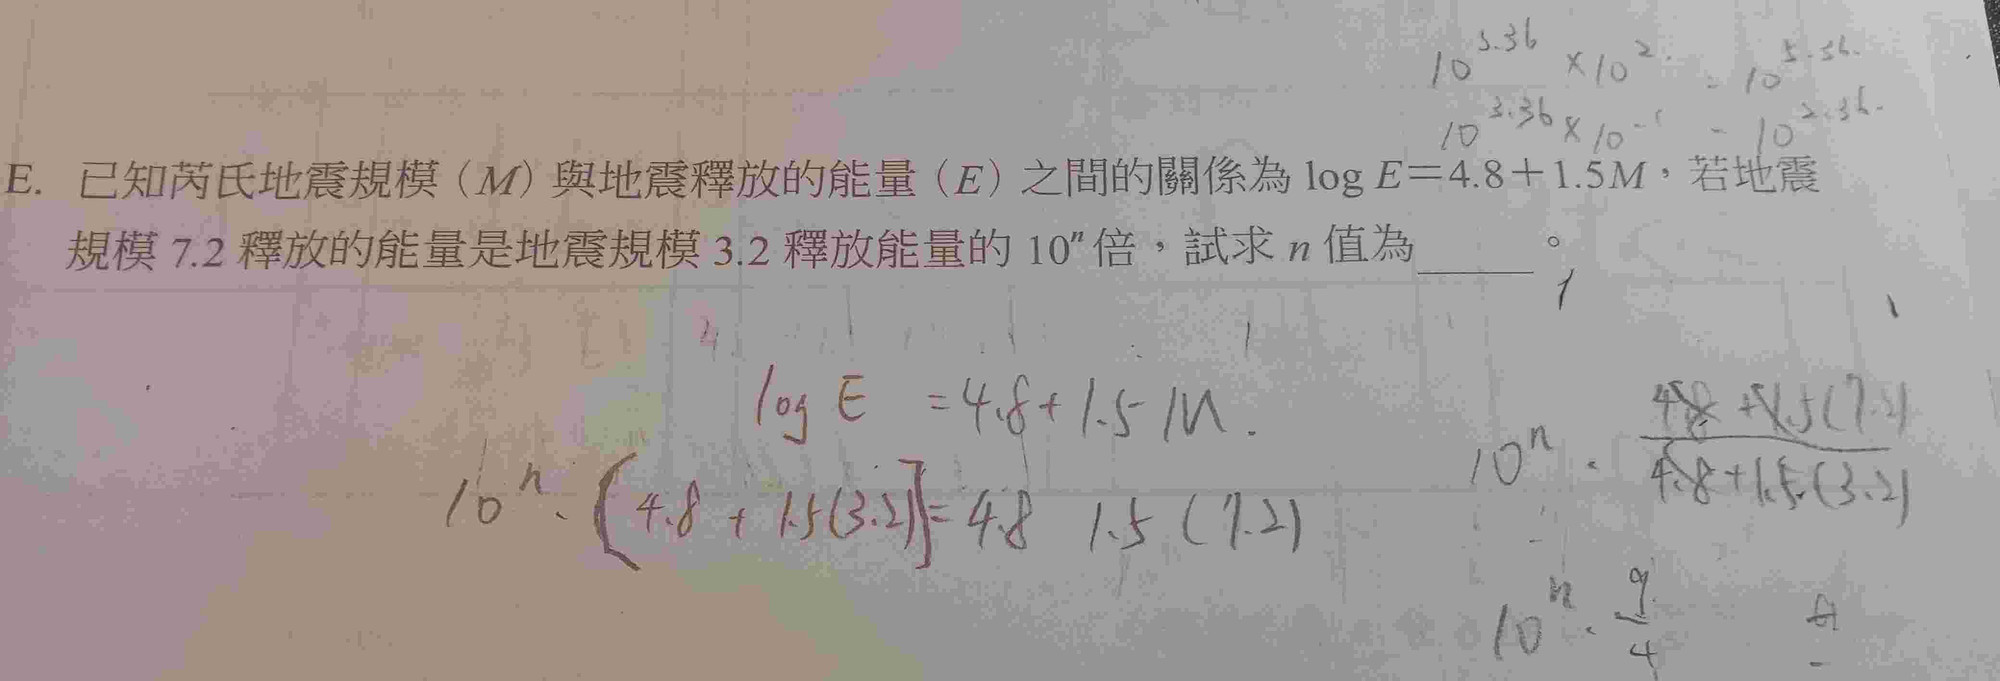 10^{3.36} × 10^2 = 10^{5.36}.
10^{3.36} × 10^{-1} = 10^{2.36}.
E. 已知芮氏地震規模（M）與地震釋放的能量（E）之間的關係為 log E＝4.8＋1.5M，若地震
規模 7.2 釋放的能量是地震規模 3.2 釋放能量的 10^n 倍，試求 n 值為______。
log E = 4.8 + 1.5 M.
10^n · [4.8 + 1.5(3.2)] = 4.8 1.5 (7.2)
10^n = \frac{4.8 + 1.5(7.2)}{4.8 + 1.5(3.2)}
10^n = \frac{9}{4}